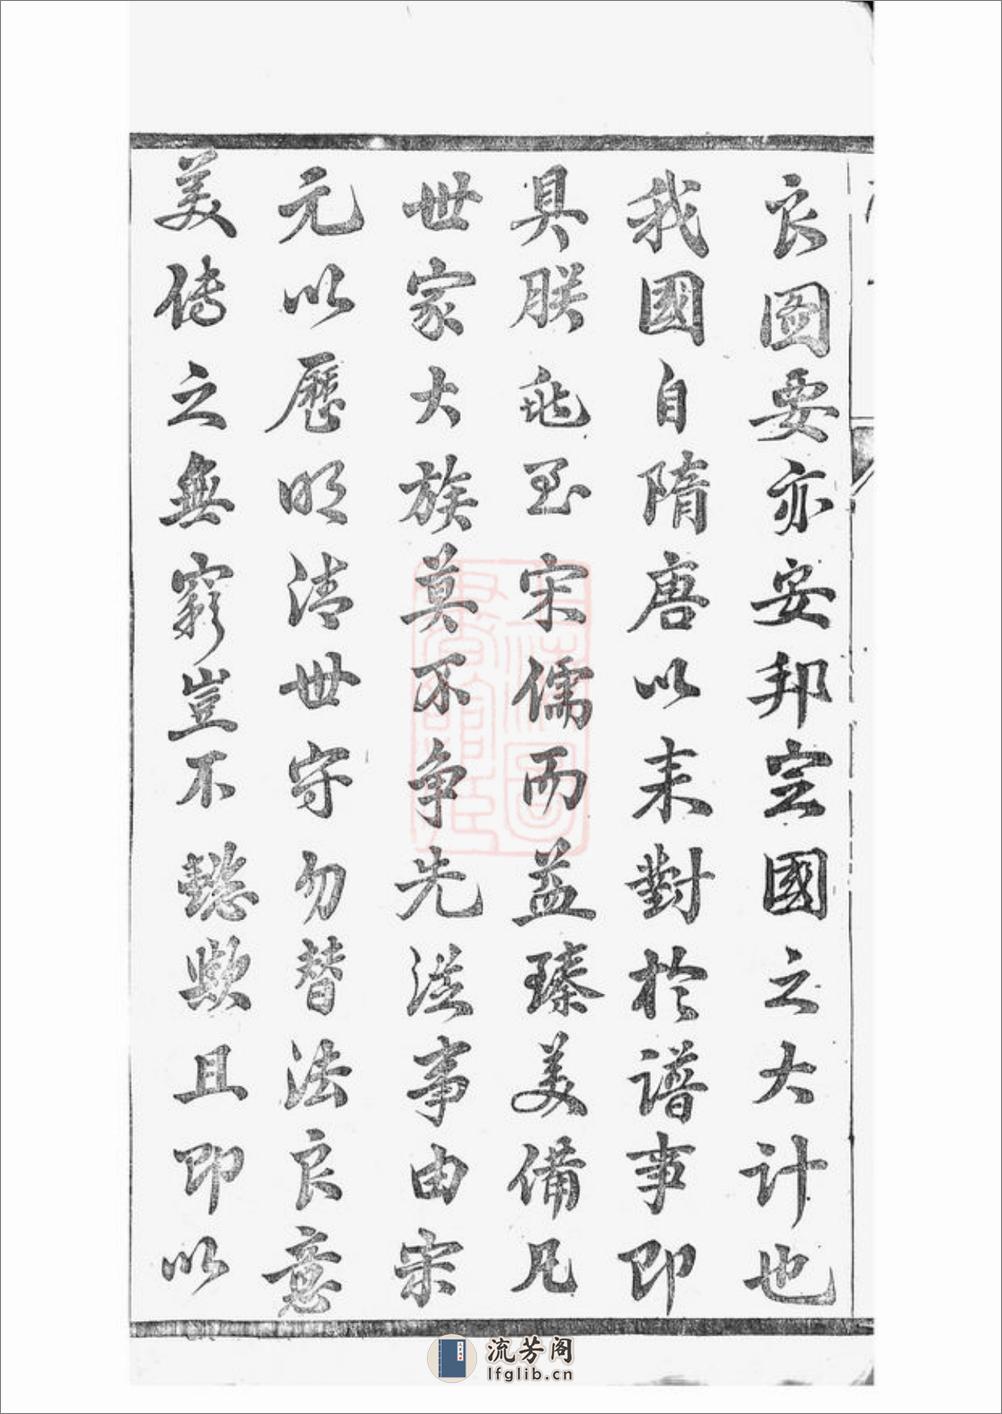 良圖要亦安邦定國之大計也
我國自隋唐以来對於譜事即
具朕兆至宋儒而益臻美備凡
世家大族莫不争先從事由宋
元以歷明清世守勿替法良意
美傳之無窮豈不懿歟且即以
流芳阁
lfglib.cn